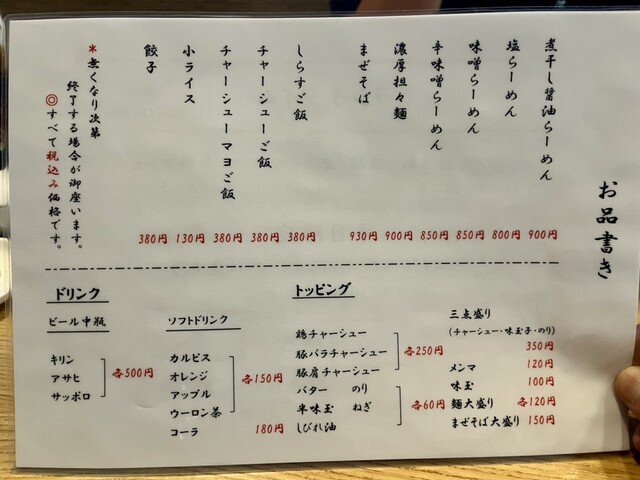 お品書き
煮干し醤油らーめん 900円
塩らーめん 800円
味噌らーめん 850円
辛味噌らーめん 850円
濃厚担々麺 900円
まぜそば 930円
しらすご飯 380円
チャーシューご飯 380円
チャーシューマヨご飯 380円
小ライス 130円
餃子 380円
*無くなり次第
終了する場合が御座います。
◎すべて税込み価格です。
ドリンク
ビール中瓶
キリン
アサヒ
サッポロ
各500円
ソフトドリンク
カルピス
オレンジ
アップル
ウーロン茶
各150円
コーラ 180円
トッピング
鶏チャーシュー
豚バラチャーシュー
豚肩チャーシュー
各250円
バター のり
半味玉 ねぎ
しびれ油
各60円
三点盛り
(チャーシュー・味玉子・のり)
350円
メンマ 120円
味玉 100円
麺大盛り 各120円
まぜそば大盛り 150円